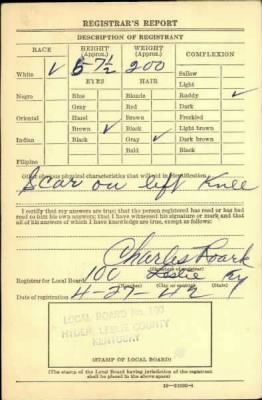 REGISTRAR'S REPORT
DESCRIPTION OF REGISTRANT
RACE HEIGHT (Approx.) WEIGHT (Approx.) COMPLEXION
White ✓ 5-7½ 200 Sallow
EYES HAIR Light
Negro Blue Blonde Ruddy ✓
Gray Red Dark
Oriental Hazel Brown Freckled
Brown ✓ Black Light brown
Indian Black Gray ✓ Dark brown
Bald Black
Filipino
Other obvious physical characteristics that will aid in identification
Scar on left Knee
I certify that my answers are true; that the person registered has read or has had
read to him his own answers; that I have witnessed his signature or mark and that
all of his answers of which I have knowledge are true, except as follows:
Charles Roark
(Signature of registrar)
Registrar for Local Board 100 Leslie Ky
(Number) (City or county) (State)
Date of registration 4-27-42
LOCAL BOARD No. 100
HYDEN, LESLIE COUNTY
KENTUCKY
(STAMP OF LOCAL BOARD)
(The stamp of the Local Board having jurisdiction of the registrant
shall be placed in the above space)